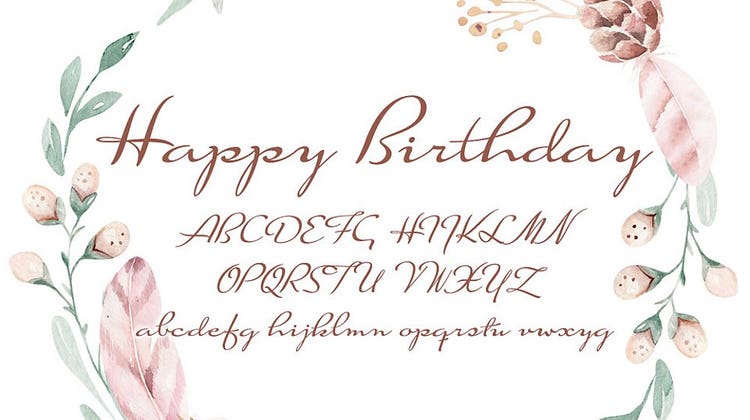 Happy Birthday
ABCDEFG HIJKLMN
OPQRSTU VWXYZ
abcdefg hijklmn opqrstu vwxyz